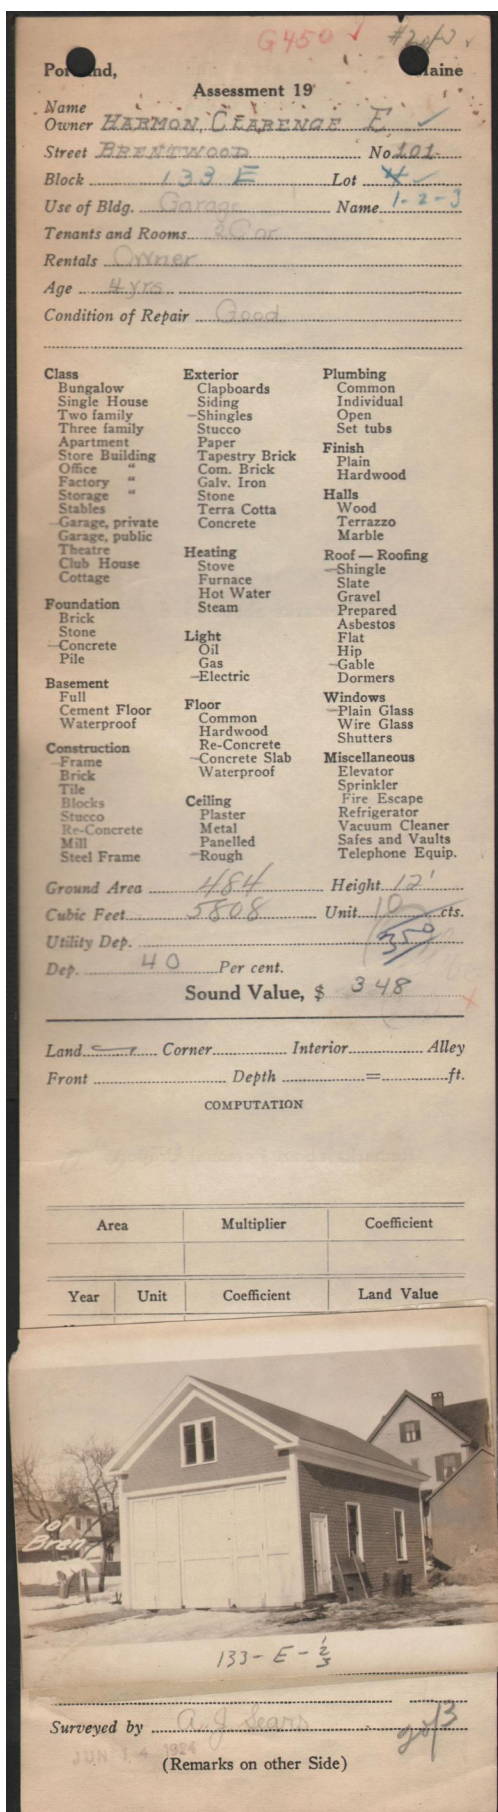 G450 #2of3
Portland, Maine
Assessment 19
Name
Owner HARMON, CLARENCE E.
Street BRENTWOOD No 101
Block 133 E Lot 4
Use of Bldg. Garage Name 1-2-3
Tenants and Rooms 2 Car
Rentals Owner
Age 4 yrs
Condition of Repair Good
Class
Bungalow
Single House
Two family
Three family
Apartment
Store Building
Office "
Factory "
Storage "
Stables
Garage, private
Garage, public
Theatre
Club House
Cottage
Foundation
Brick
Stone
Concrete
Pile
Basement
Full
Cement Floor
Waterproof
Construction
Frame
Brick
Tile
Blocks
Stucco
Re-Concrete
Mill
Steel Frame
Exterior
Clapboards
Siding
Shingles
Stucco
Paper
Tapestry Brick
Com. Brick
Galv. Iron
Stone
Terra Cotta
Concrete
Heating
Stove
Furnace
Hot Water
Steam
Light
Oil
Gas
Electric
Floor
Common
Hardwood
Re-Concrete
Concrete Slab
Waterproof
Ceiling
Plaster
Metal
Panelled
Rough
Plumbing
Common
Individual
Open
Set tubs
Finish
Plain
Hardwood
Halls
Wood
Terrazzo
Marble
Roof — Roofing
Shingle
Slate
Gravel
Prepared
Asbestos
Flat
Hip
Gable
Dormers
Windows
Plain Glass
Wire Glass
Shutters
Miscellaneous
Elevator
Sprinkler
Fire Escape
Refrigerator
Vacuum Cleaner
Safes and Vaults
Telephone Equip.
Ground Area 484 Height 12'
Cubic Feet 5808 Unit 10 cts.
Utility Dep. 350
Dep. 40 Per cent.
Sound Value, $ 348
Land Corner Interior Alley
Front Depth = ft.
COMPUTATION
Area Multiplier Coefficient
Year Unit Coefficient Land Value
101
Bren
133-E-1/2/3
Surveyed by A. J. Sears 2of3
JUN 14 1924
(Remarks on other Side)